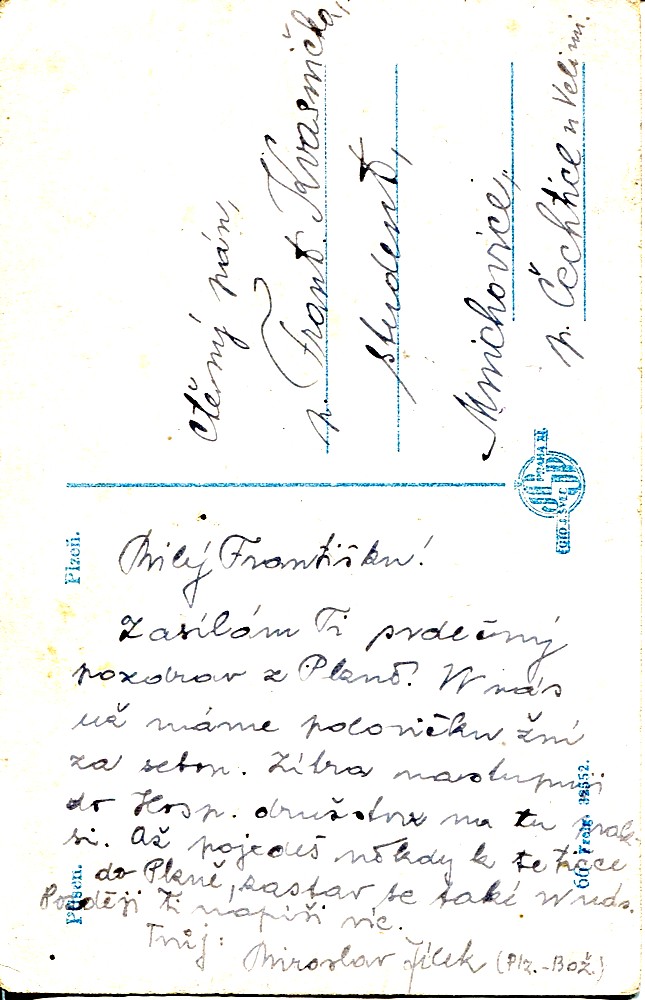 Ctěný pán,
p. Frant. Kvasnička,
student,
Mnichovice,
p. Čechtice u Vel
PRAHA XI.
Plzeň.
Milý Františku!
Zasílám Ti srdečný
pozdrav z Plzně. U nás
už máme polovičku žní
za sebou. Zítra nastupuji
do Hosp. družstva na tu prak-
si. Až pojedeš někdy k tetičce
do Plzně, zastav se také u nás.
Později Ti napíši víc.
Tvůj:
Miroslav Jílek (Plz.-Bož.)
Pilsen.